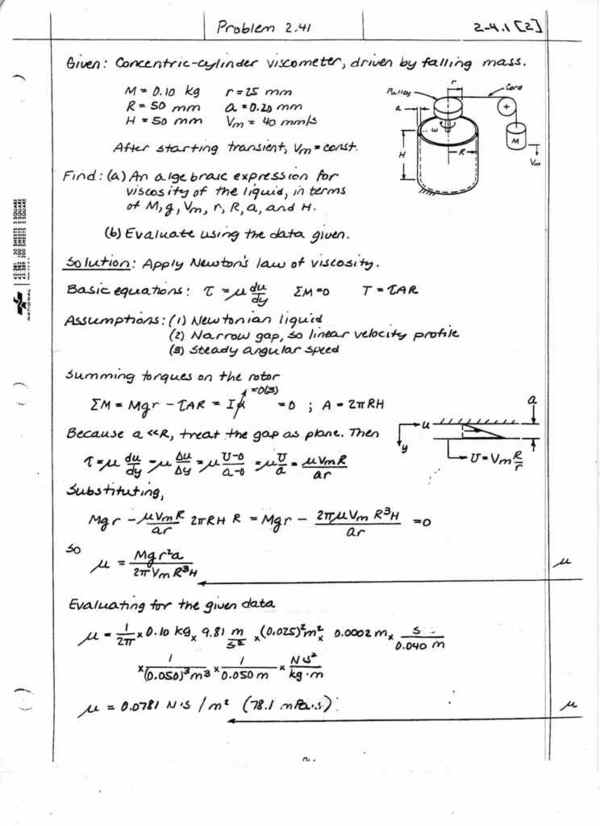 Problem 2.41
2-4.1 [2]
Given: Concentric-cylinder viscometer, driven by falling mass.
M = 0.10 kg r = 25 mm
R = 50 mm a = 0.20 mm
H = 50 mm Vm = 40 mm/s
After starting transient, Vm = const.
Pulley r Cord
a
ω
H R M
Vm
Find: (a) An algebraic expression for
viscosity of the liquid, in terms
of M, g, Vm, r, R, a, and H.
(b) Evaluate using the data given.
Solution: Apply Newton's law of viscosity.
Basic equations: τ = μ du/dy ΣM=0 T = τAR
Assumptions: (1) Newtonian liquid
(2) Narrow gap, so linear velocity profile
(3) Steady angular speed
Summing torques on the rotor
ΣM = Mgr - τAR = Iα =0(3) =0 ; A = 2πRH
Because a << R, treat the gap as plane. Then
τ = μ du/dy = μ Δu/Δy = μ (U-0)/(a-0) = μ U/a = μVmR/ar
a
u
y
U = Vm R/r
Substituting,
Mgr - μVmR/ar 2πRH R = Mgr - 2πμVm R³H/ar = 0
So
μ = Mgr²a/2πVmR³H
μ
Evaluating for the given data
μ = 1/2π × 0.10 kg × 9.81 m/s² × (0.025)² m² × 0.0002 m × s/0.040 m
× 1/(0.050)³ m³ × 1/0.050 m × N·s²/kg·m
μ = 0.0781 N·s / m² (78.1 mPa·s)
μ